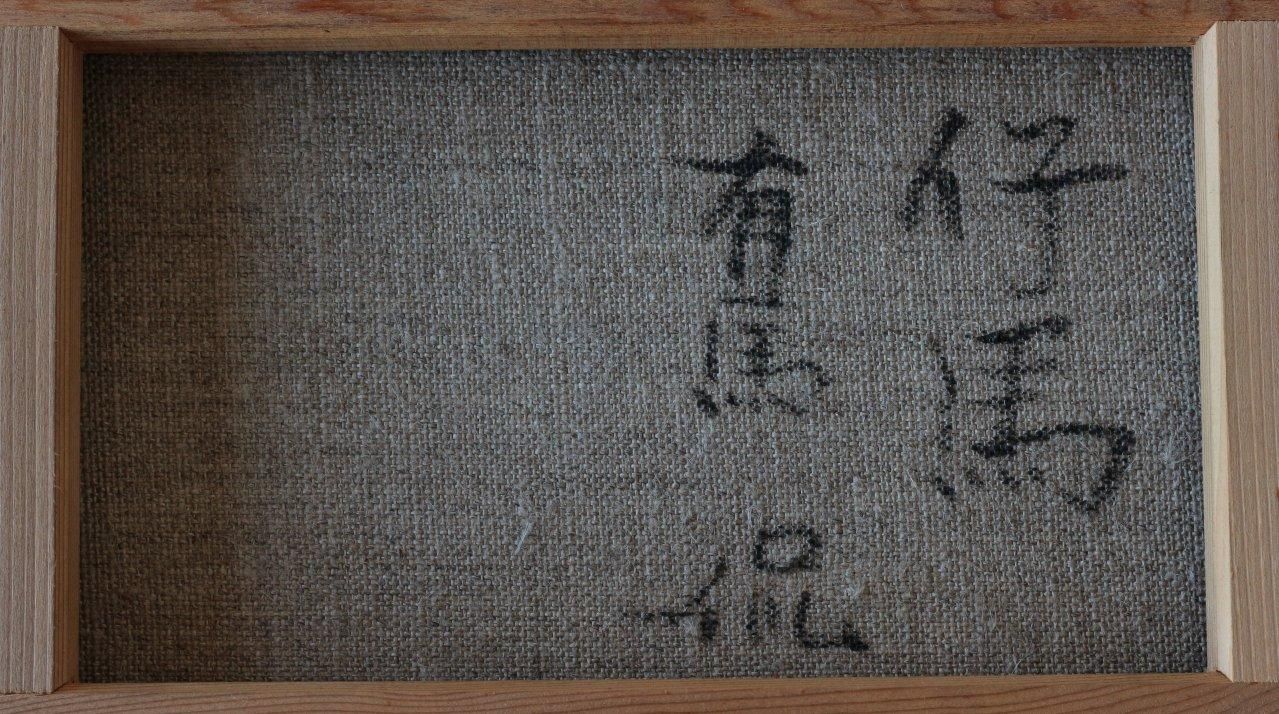 仔馬
有馬侃